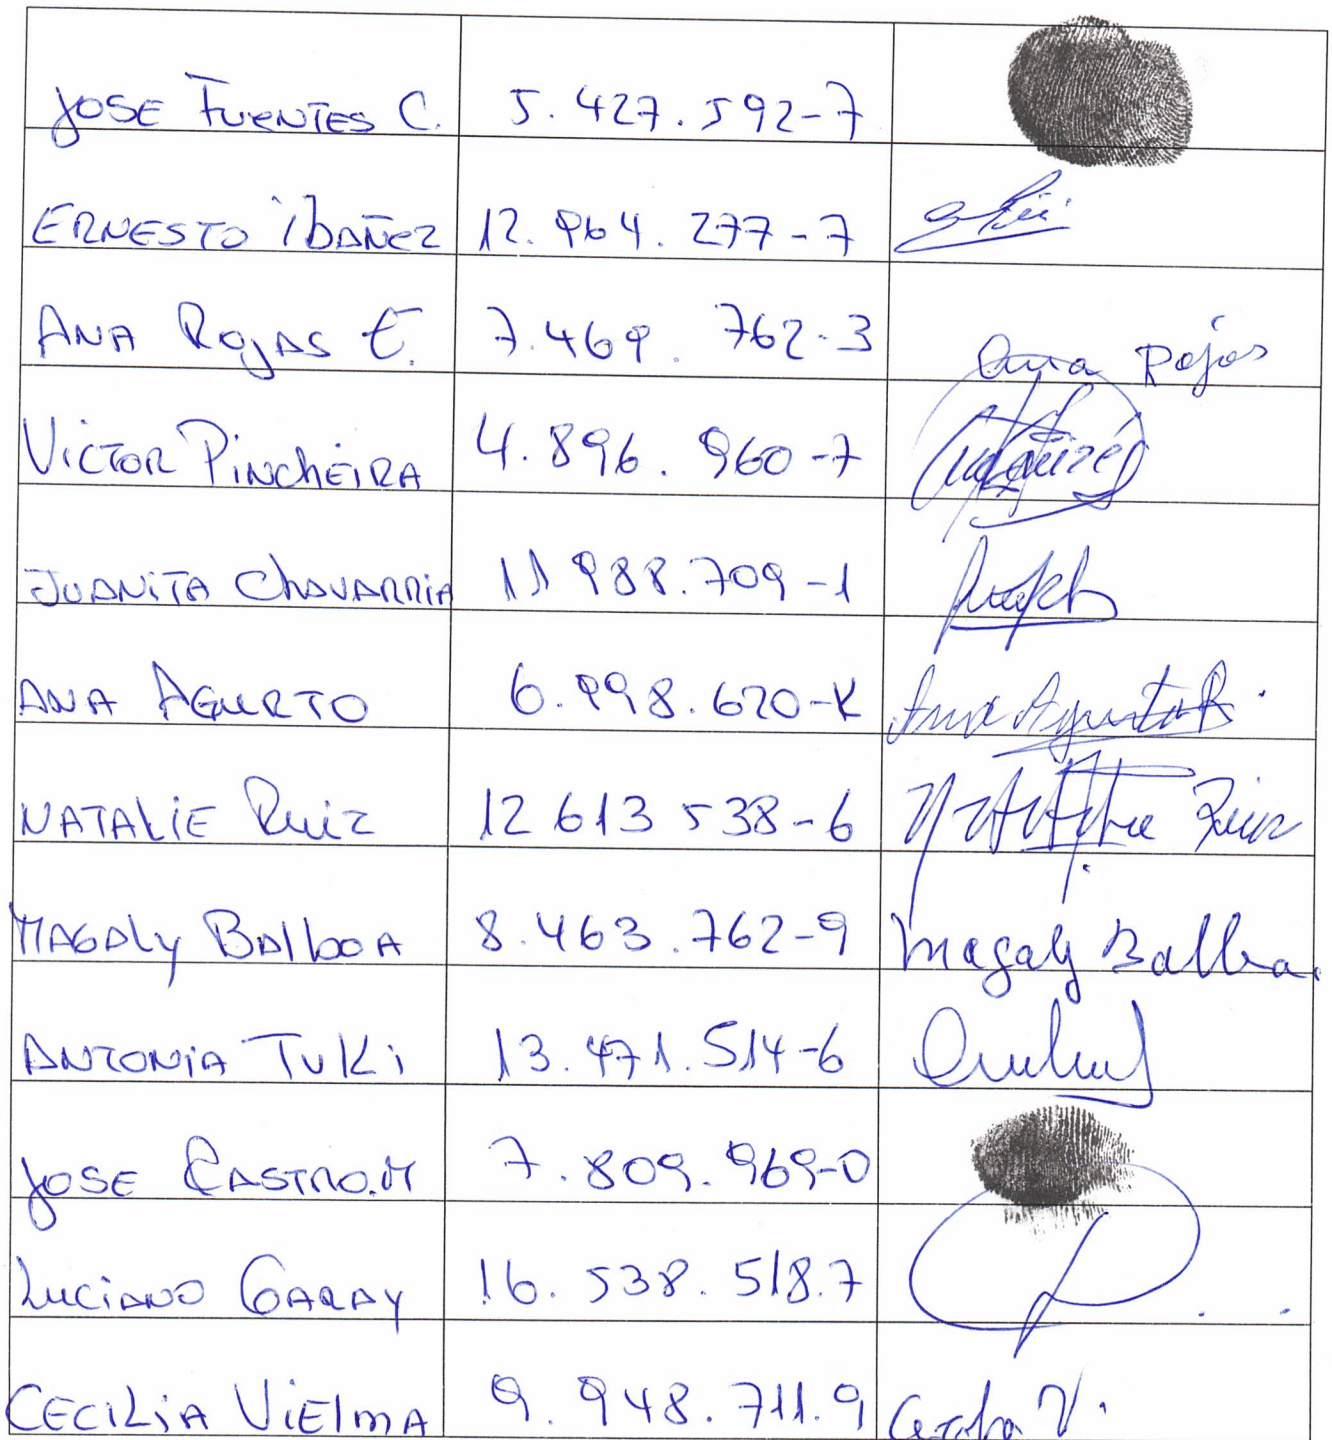 JOSE FUENTES C. 5.427.592-7
ERNESTO IBAÑEZ 12.964.277-7
ANA ROJAS E. 7.469.762-3 Ana Rojas
VICTOR PINCHEIRA 4.896.960-7
JUANITA CHAVARRIA 11 988.709-1
ANA AGURTO 6.998.620-K Ana Agurto R.
NATALIE RUIZ 12 613 538-6 Natalie Ruiz
MAGALY BALBOA 8.463.762-9 Magaly Balboa.
ANTONIA TUKI 13.471.514-6
JOSE CASTRO.M 7.809.969-0
LUCIANO GARAY 16.538.518.7
CECILIA VIELMA 9.948.711.9 Cecilia V.